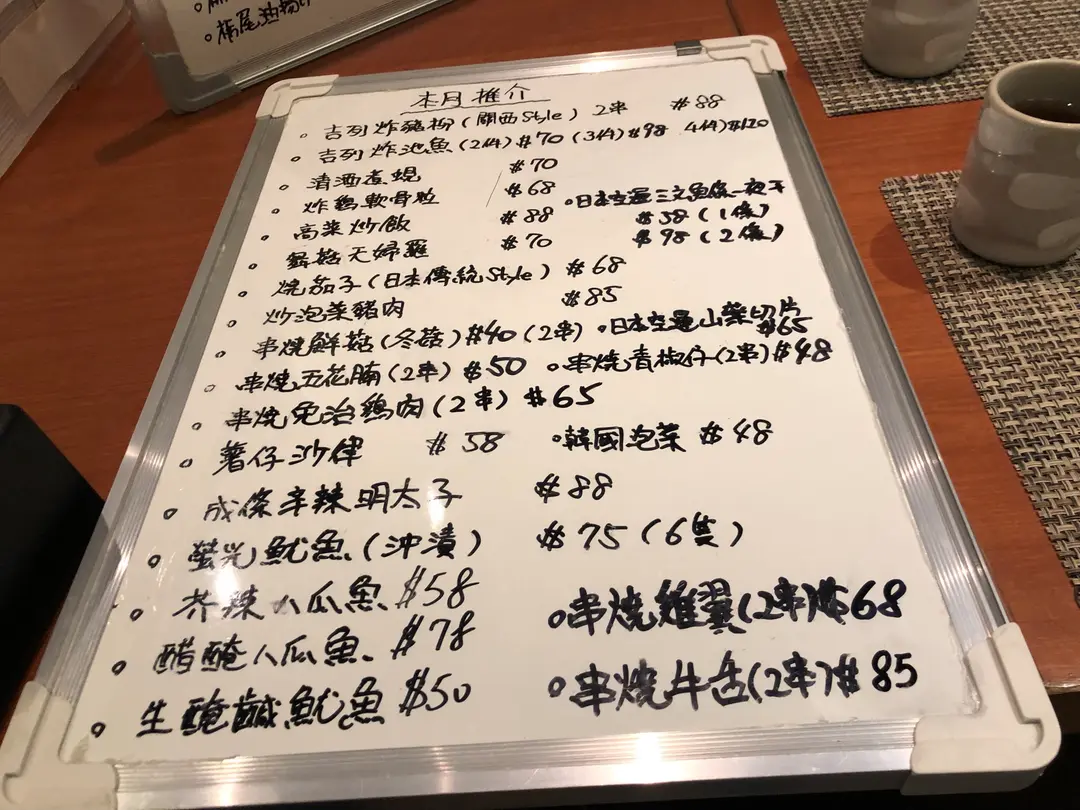 。梳尾池
本月推介
。吉列炸豬柳(關西Style) 2串 $88
。吉列炸池魚(2件)$70 (3件)$98 4件$120
。清酒煮蜆 $70
。炸鷄軟骨粒 $68 。日本空運三文魚條一夜干
。高菜炒飯 $88 $58 (1條)
。蘑菇天婦羅 $70 $98 (2條)
。燒茄子(日本傳統Style) $68
。炒泡菜豬肉 $85
。串燒鮮菇(冬菇)$40 (2串) 。日本空運山葉切片 $65
。串燒五花腩(2串) $50 。串燒青椒仔(2串)$48
。串燒免治鷄肉(2串) $65
。薯仔沙律 $58 。韓國泡菜 $48
。成條辛辣明太子 $88
。螢光魷魚(沖漬) $75 (6隻)
。芥辣八爪魚 $58 。串燒雞翼(2串)$68
。醋醃八爪魚 $78
。生醃鹹魷魚 $50 。串燒牛舌(2串)$85